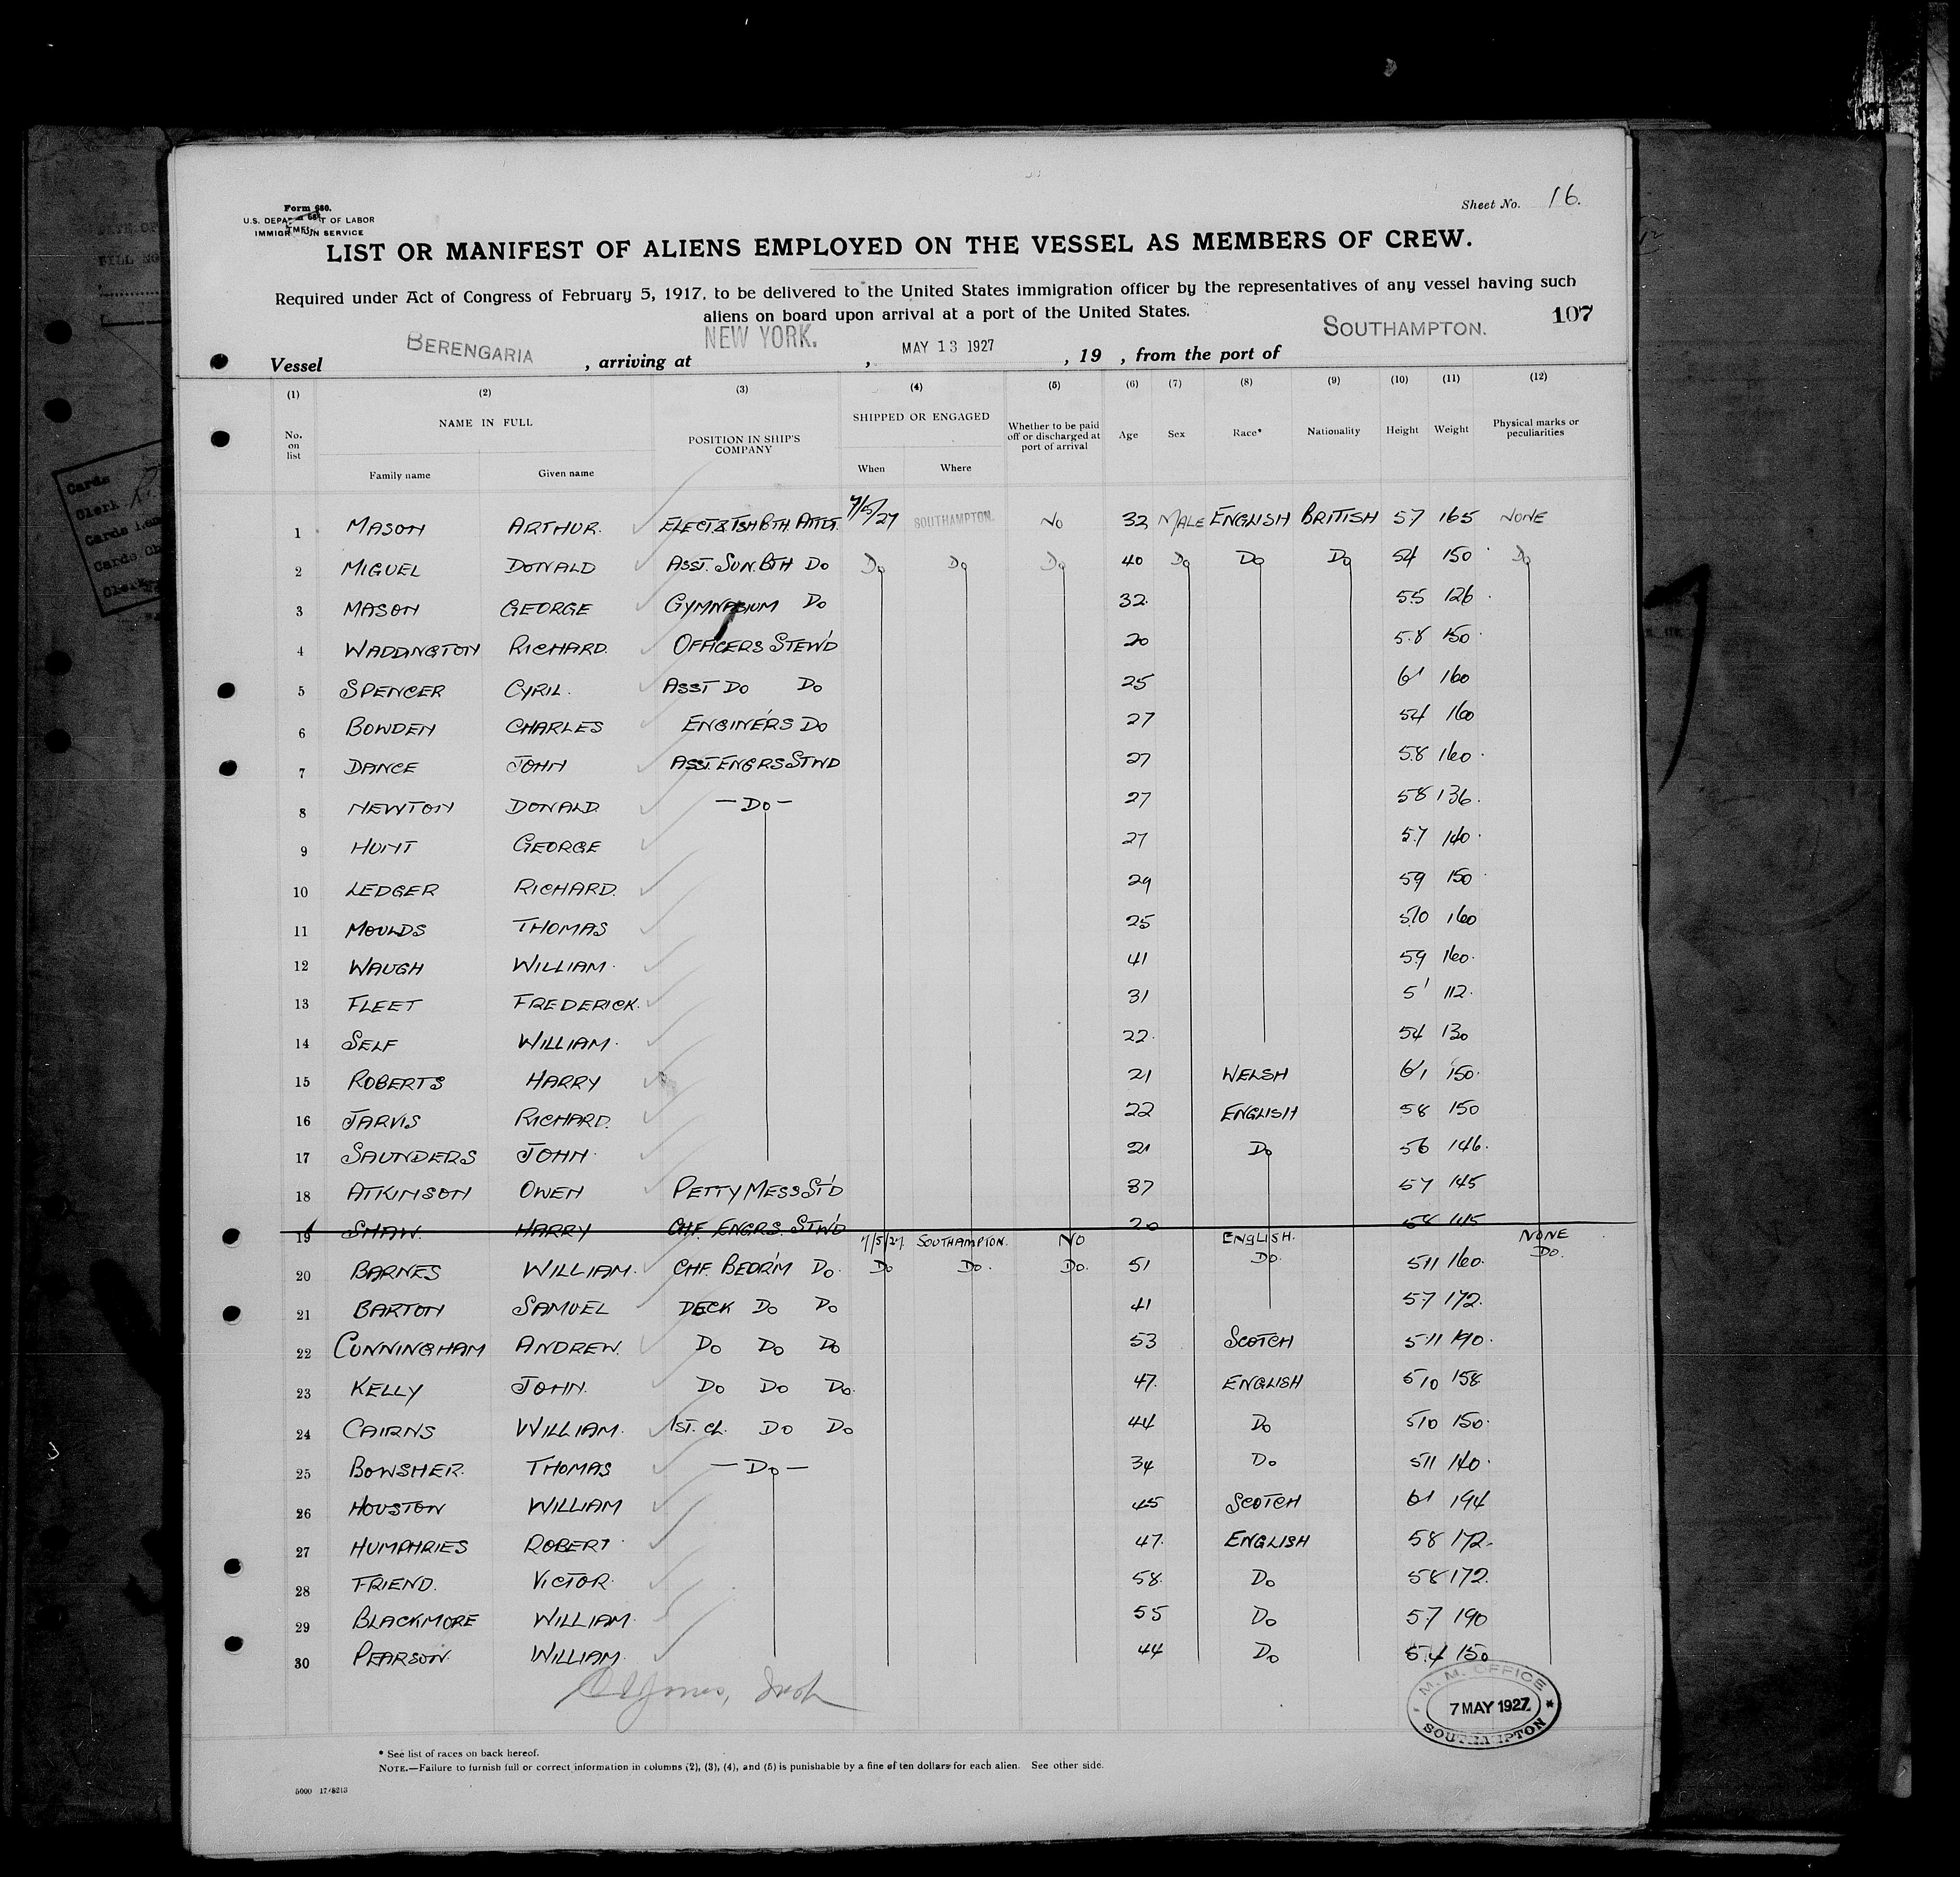 Sheet No. 16.
Form 680.
U.S. DEPARTMENT OF LABOR
IMMIGRATION SERVICE
LIST OR MANIFEST OF ALIENS EMPLOYED ON THE VESSEL AS MEMBERS OF CREW.
Required under Act of Congress of February 5, 1917, to be delivered to the United States immigration officer by the representatives of any vessel having such
aliens on board upon arrival at a port of the United States.
107
Vessel BERENGARIA, arriving at NEW YORK., MAY 13 1927, 19 , from the port of SOUTHAMPTON.
(1) (2) (3) (4) (5) (6) (7) (8) (9) (10) (11) (12)
No. on list NAME IN FULL Family name Given name POSITION IN SHIP'S COMPANY SHIPPED OR ENGAGED When Where Whether to be paid off or discharged at port of arrival Age Sex Race* Nationality Height Weight Physical marks or peculiarities
1 MASON ARTHUR. ELECT & TSH BTH ATTDT. 7/5/27 SOUTHAMPTON. NO 32 MALE ENGLISH BRITISH 57 165 NONE
2 MIGUEL DONALD ASST. SUN. BTH DO DO DO DO 40 DO DO DO 54 150 DO
3 MASON GEORGE GYMNASIUM DO 32. 5.5 126
4 WADDINGTON RICHARD. OFFICERS STEW'D 20 5.8 150
5 SPENCER CYRIL. ASST DO DO 25 6' 160
6 BOWDEN CHARLES ENGINE'RS DO 27 54 160
7 DANCE JOHN ASST. ENGRS STWD 27 5.8 160
8 NEWTON DONALD. - DO - 27 58 136.
9 HUNT GEORGE 27 5.7 140
10 LEDGER RICHARD. 29 59 150
11 MOULDS THOMAS 25 5.10 160
12 WAUGH WILLIAM. 41 59 160.
13 FLEET FREDERICK. 31 5' 112.
14 SELF WILLIAM. 22. 54 130
15 ROBERTS HARRY 21 WELSH 6'1 150.
16 JARVIS RICHARD. 22 ENGLISH 58 150
17 SAUNDERS JOHN. 21 DO 56 146.
18 ATKINSON OWEN PETTY MESS ST'D 37 57 145
19 SHAW. HARRY CHF. ENGRS. STW'D 20 58 145
7/5/27. SOUTHAMPTON. NO ENGLISH. NONE
20 BARNES WILLIAM. CHF. BEDR'M DO. DO DO. DO. 51 DO. 511 160. DO.
21 BARTON SAMUEL DECK DO DO 41 5.7 172.
22 CUNNINGHAM ANDREW. DO DO DO 53 SCOTCH 5.11 190.
23 KELLY JOHN. DO DO DO. 47. ENGLISH 510 158
24 CAIRNS WILLIAM. 1ST. CL. DO DO 44 DO 510 150.
25 BOWSHER. THOMAS - DO - 34 DO 511 140.
26 HOUSTON WILLIAM 45 SCOTCH 6' 194
27 HUMPHRIES ROBERT 47. ENGLISH 58 172.
28 FRIEND. VICTOR. 58. DO 58 172.
29 BLACKMORE WILLIAM. 55 DO 5.7 190
30 PEARSON. WILLIAM. 44 DO 5.4 150
M. M. OFFICE
7 MAY 1927
SOUTHAMPTON
* See list of races on back hereof.
NOTE.—Failure to furnish full or correct information in columns (2), (3), (4), and (5) is punishable by a fine of ten dollars for each alien. See other side.
5000 17/8213